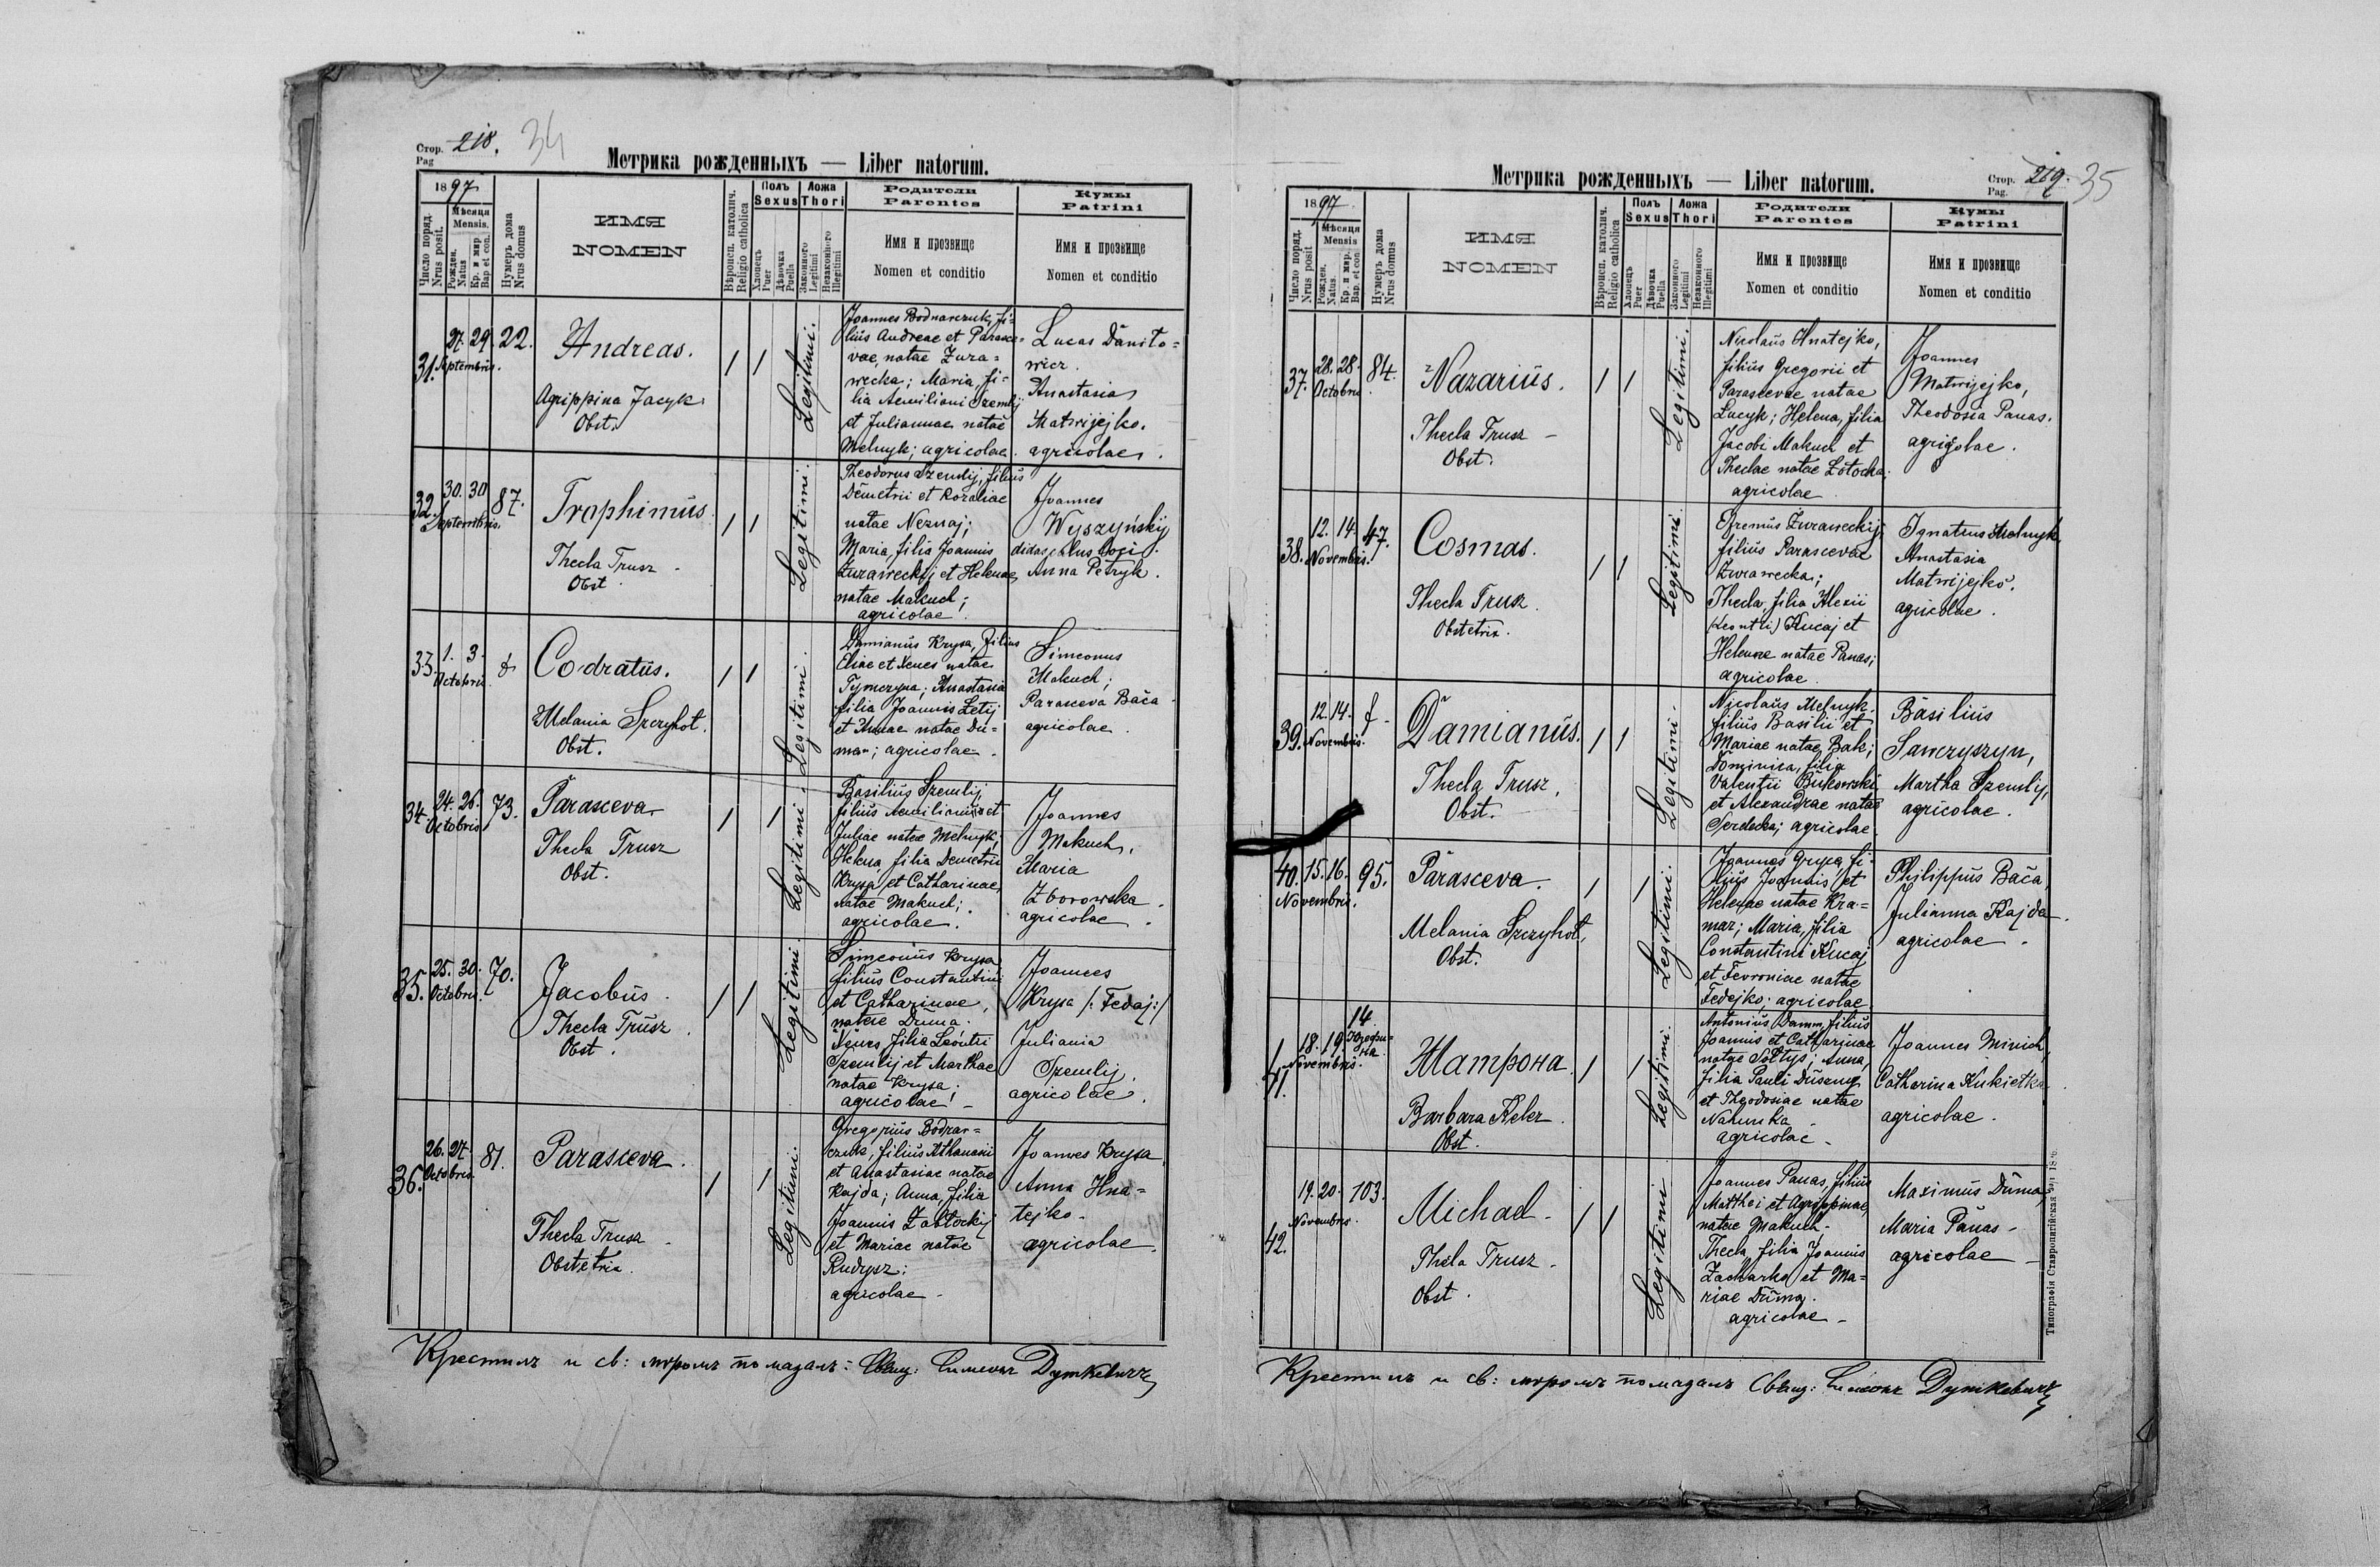 Стор. 218. 34
Pag
Метрика рожденныхъ — Liber natorum.
1897
Число поряд.
Nrus posit.
Мѣсяця
Mensis.
Рожден.
Natus
Кр. и мир
Bap et con.
Нумеръ дома
Nrus domus
ИМЯ
NOMEN
Вѣроисп. католич.
Religio catholica
Полъ
Sexus
Хлопецъ
Puer
Дѣвочка
Puella
Ложа
Thori
Законного
Legitimi
Незаконного
Illegitimi
Родители
Parentes
Имя и прозвище
Nomen et conditio
Кумы
Patrini
Имя и прозвище
Nomen et conditio
31. 27. 29. 22.
Septembris.
Andreas.
Agrippina Jacyk
Obst.
/ /
Legitimi.
Joannes Bodnarczuk, fi=
lius Andreae et Parasce=
vae, natae Zura=
wecka; Maria, fi=
lia Aemiliani Szemlij
et Juliannae natae
Melnyk; agricolae.
Lucas Danito=
wicz.
Anastasia
Matwijejko.
agricolae.
32. 30. 30 87.
Septembris.
Trophimus
Thecla Trusz
Obst.
/ /
Legitimi.
Theodorus Szemlij, filius
Demetrii et Rozaliae
natae Neznaj;
Maria, filia Joannis
Zuraweckij et Helenae,
natae Makuch;
agricolae.
Joannes
Wyszyńskij
didascalus loci.
Anna Petryk.
33. 1. 3.
Octobris
Codratus.
Melania Szczyhot.
Obst.
/ /
Legitimi.
Damianus Krysa, filius
Eliae et Xenes natae
Tymczyna; Anastasia
filia Joannis Letij
et Annae natae Du=
man; agricolae.
Simeonus
Makuch;
Parasceva Bača
agricolae.
34. 24. 26. 73.
Octobris
Parasceva
Thecla Trusz
Obst.
/ /
Legitimi.
Basilius Szemlij
filius Aemilianus et
Juliae natae Melnyk;
Helena, filia Demetrii
Krysa et Catharinae,
natae Makuch;
agricolae.
Joannes
Makuch,
Maria
Zborowska.
agricolae.
35. 25. 30. 70.
Octobris.
Jacobus.
Thecla Trusz.
Obst.
/ /
Legitimi.
Simeonus Krysa
filius Constantini
et Catharinae,
natae Duma.
Xenes filia Leontii
Szemlij et Marthae
natae Krysa;
agricolae.
Joannes
Krysa /: Fedaj :/
Juliania
Szemlij.
agricolae.
36. 26. 27. 81.
Octobris.
Parasceva.
Thecla Trusz
Obstetrix.
/ /
Legitimi.
Gregorius Bodnar=
czuk, filius Athanasii
et Anastasiae natae
Kajda; Anna, filia
Joannis Zabłockij
et Mariae natae
Rudysz;
agricolae.
Joannes Krysa
Anna Hna=
tejko.
agricolae.
Крестилъ и св: мνромъ помазалъ: Свящ: Симеонъ Дуткевичъ
Метрика рожденныхъ — Liber natorum.
Стор. 219. 35
Pag.
1897.
Число поряд.
Nrus posit
Мѣсяця
Mensis
Рожден.
Natus
Кр. и мир.
Bap. et con.
Нумеръ дома
Nrus domus
ИМЯ
NOMEN
Вѣроисп. католич.
Religio catholica
Полъ
Sexus
Хлопецъ
Puer
Дѣвочка
Puella
Ложа
Thori
Законного
Legitimi
Незаконного
Illegitimi
Родители
Parentes
Имя и прозвище
Nomen et conditio
Кумы
Patrini
Имя и прозвище
Nomen et conditio
37. 28. 28. 84.
Octobris
Nazarius.
Thecla Trusz
Obst.
/ /
Legitimi.
Nicolaus Hnatejko,
filius Gregorii et
Parascevae natae
Lucyk; Helena, filia
Jacobi Makuch et
Theclae natae Łotocka;
agricolae
Joannes
Matwijejko,
Theodosia Panas.
agricolae.
38. 12. 14. 47.
Novembris.
Cosmas.
Thecla Trusz.
Obstetrix.
/ /
Legitimi.
Efremus Zuraweckij
filius Parascevae
Zurawecka;
Thecla, filia Alexii
(Leontii) Kucaj et
Helenae natae Panas;
agricolae.
Ignatius Melnyk.
Anastasia
Matwijejko.
agricolae.
39. 12. 14. f
Novembris.
Damianus.
Thecla Trusz.
Obst.
/ /
Legitimi.
Nicolaus Melnyk
filius Basilii et
Mariae natae Bak;
Dominica, filia
Valentii Bukowski
et Alexandrae natae
Serdecka; agricolae.
Basilius
Sawczyszyn,
Martha Szemlij,
agricolae.
40. 15. 16. 95.
Novembris.
Parasceva.
Melania Szczyhot,
Obst.
/ /
Legitimi.
Joannes Grysa, fi=
lius Joannis et
Helenae natae Kra=
mar; Maria, filia
Constantini Kucaj
et Fevroniae natae
Fedejko; agricolae.
Philippus Bača,
Julianna Kajda.
agricolae.
41. 18. 19. 14
Novembris.
Матрона.
Barbara Keler.
Obst.
/ /
Legitimi.
Antonius Damm, filius
Joannis et Catharinae
natae Sołtys; Anna,
filia Pauli
et Theodosiae natae
agricolae.
Joannes Minich,
Catharina Kukietka.
agricolae.
42. 19. 20. 103.
Novembris.
Michael.
Thecla Trusz.
Obst.
/ /
Legitimi
Joannes Panas, filius
Matthei et Agrippinae,
natae Makuch.
Thecla, filia Joannis
Zacharko et Ma=
riae Duma.
agricolae.
Maximus Duma,
Maria Panas.
agricolae
Крестилъ и св: мνромъ помазалъ Свящ: Симеонъ Дуткевичъ
Типографія Ставропигійская